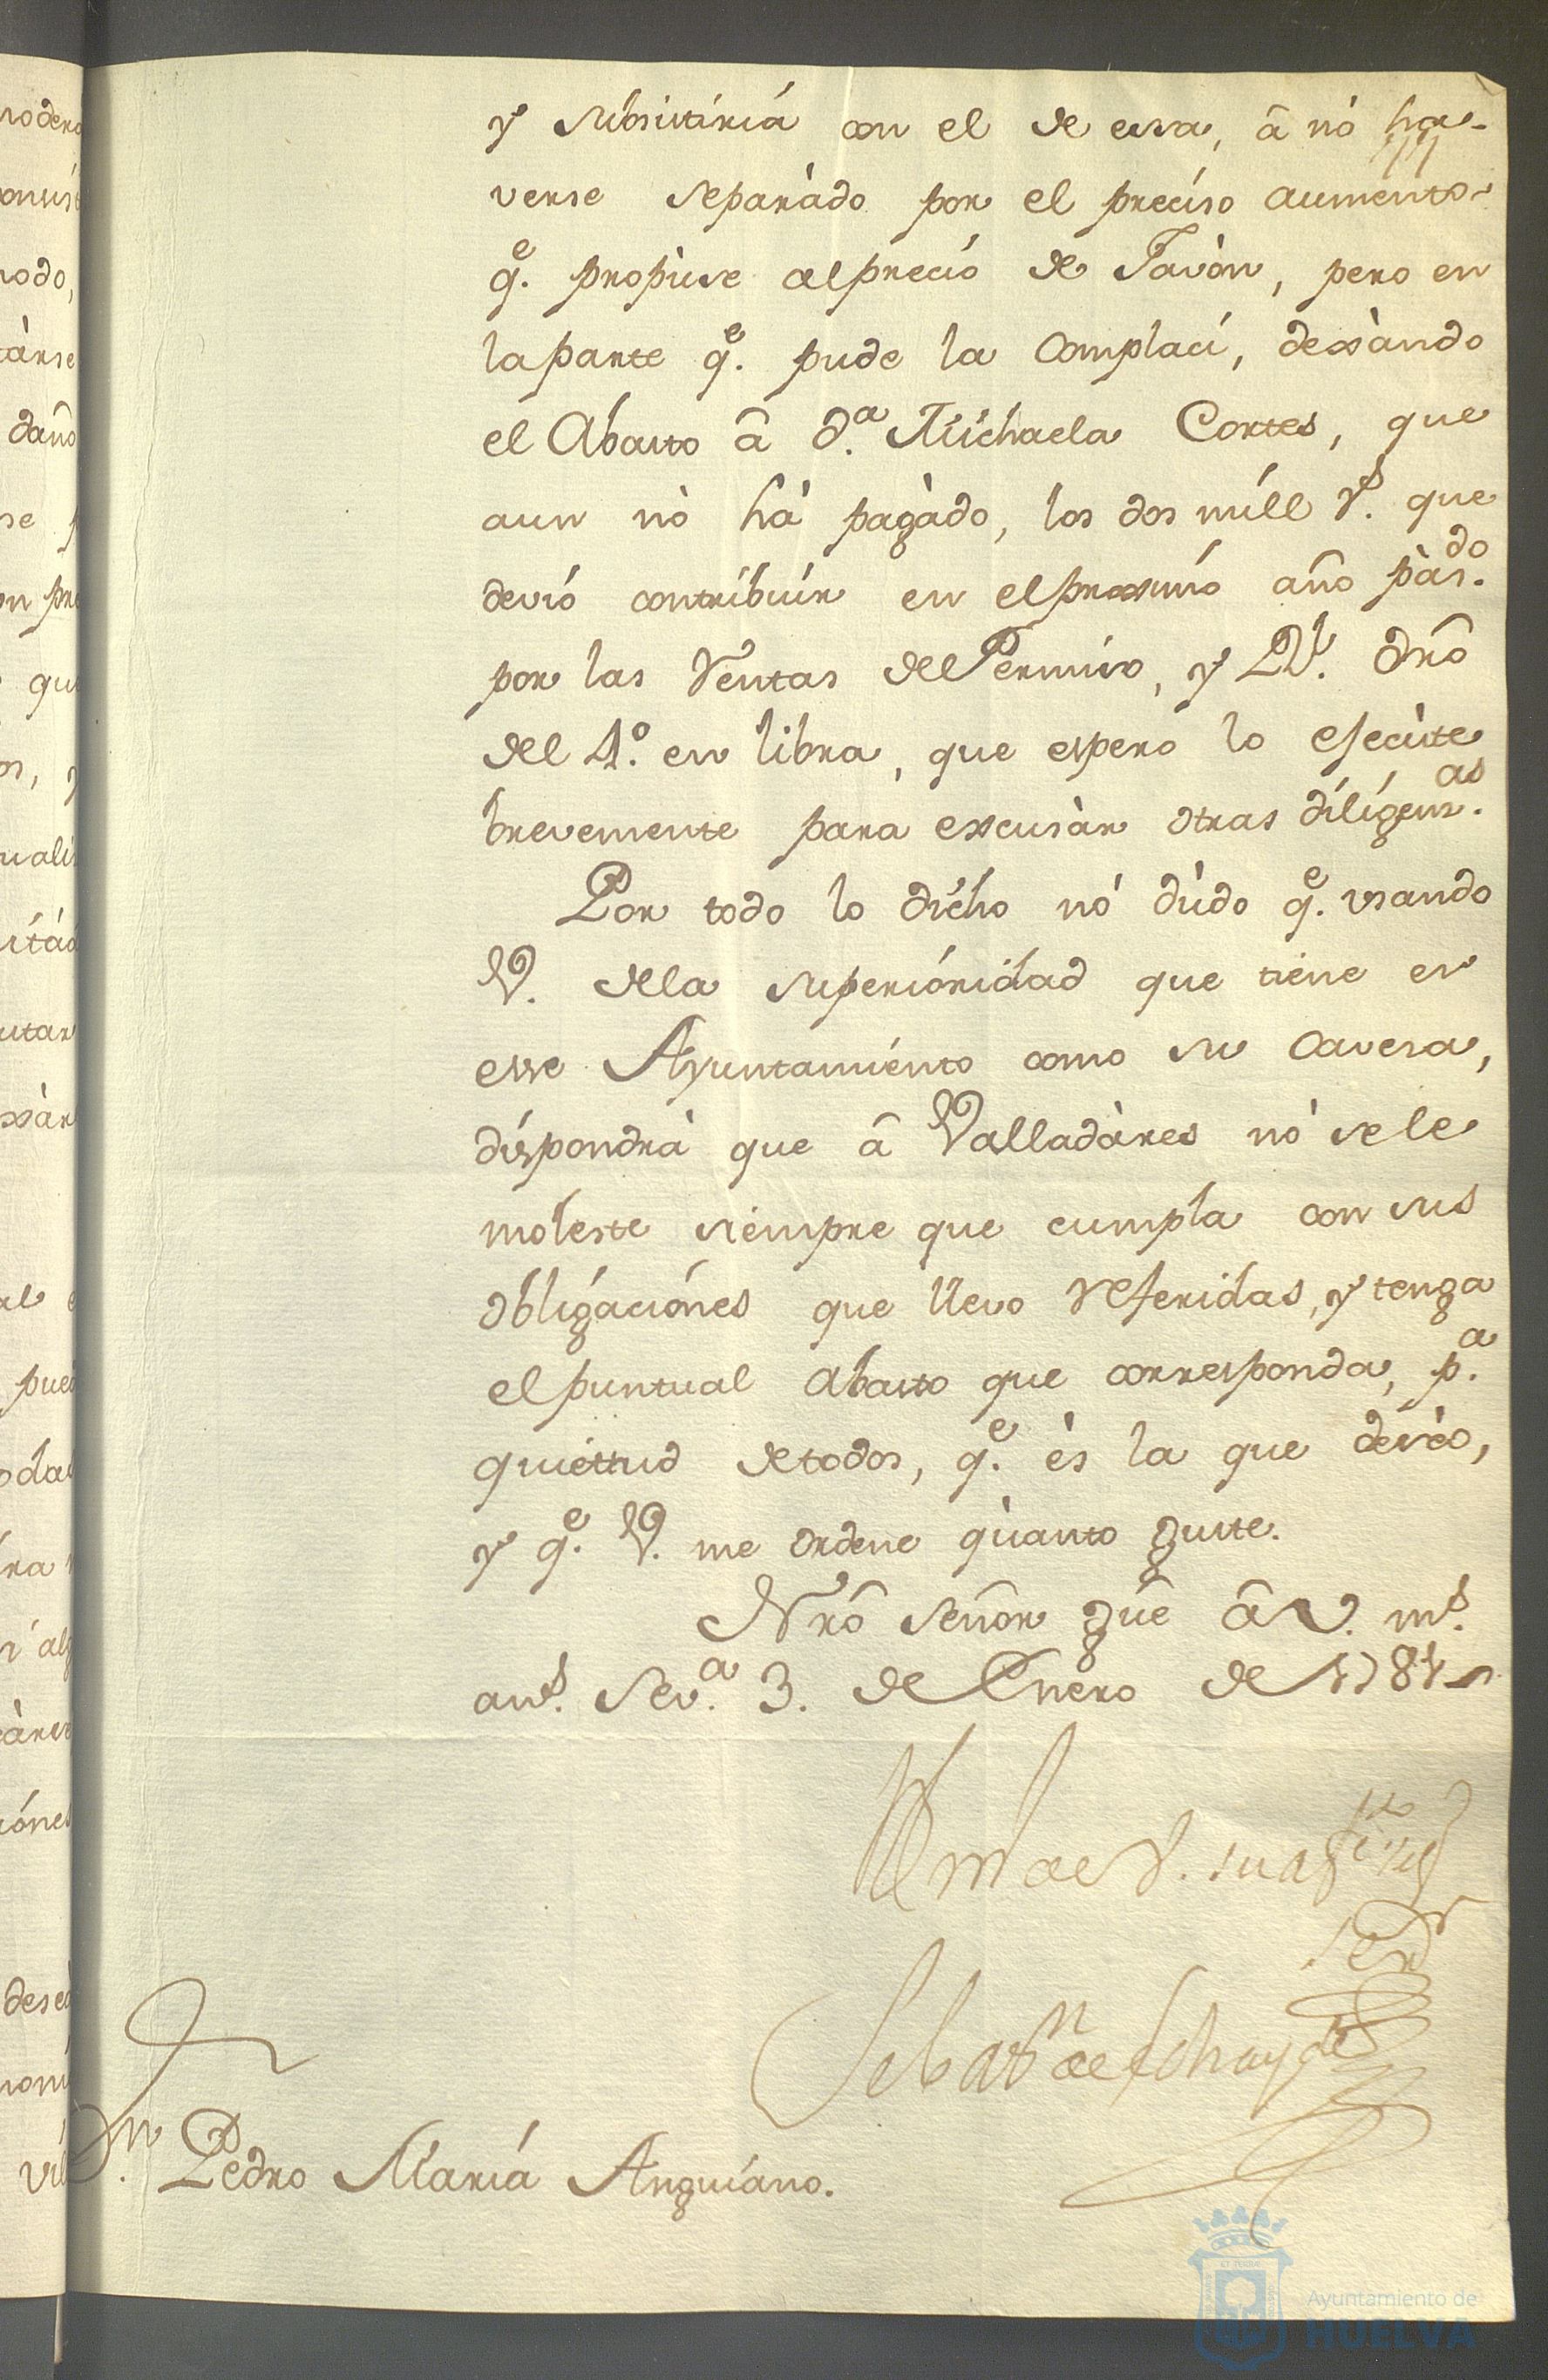 y subsistiria con el de essa, â nó ha-
verse separàdo por el preciso aumento
q.e propùse al preció de Javòn, pero en
la parte q.e pude la complací, dexàndo
el Abasto â d.a Michaela Cortes, que
aun nò hà pagàdo, los dos mill r.s que
devió contribuír en el proximo año pàs.do
por las Ventas del Permiso, y R.l drô
del 4.o en libra, que espero lo efecùte
brevemente para excusàr otras diligenz.as
Por todo lo dicho nó dùdo q.e usando
V. de la superióridad que tiene en
esse Ayuntamiénto como su Cavesa,
dispondrà que â Valladàres nó se le
moleste siémpre que cumpla con sus
obligaciónes que llevo referidas, y tenga
el puntual abasto que corresponda, p.a
quiettud de todos, q.e ès la que deséo,
y q.e V. me ordene quànto guste.
Nrô Señor gûe â V. m.s
an.s Sev.a 3. de Enero de 1784
BlM de V. su af.to
Ser.r
Sebas.n de
D.n Pedro María Anguiano.
Ayuntamiento de
HUELVA